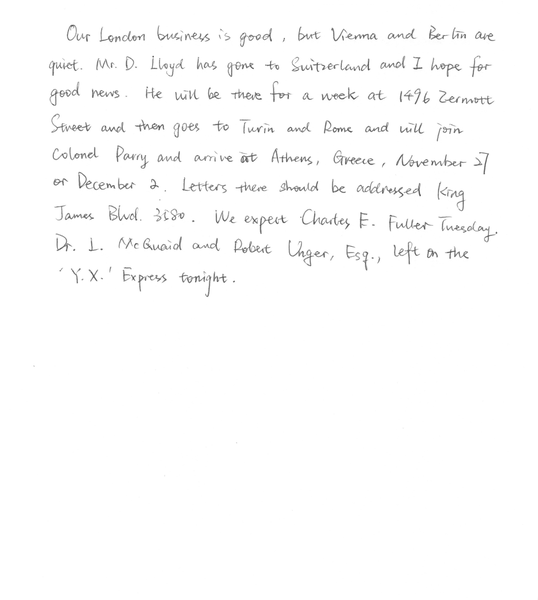 Our London business is good, but Vienna and Berlin are
quiet. Mr. D. Lloyd has gone to Suitzerland and I hope for
good news. He will be there for a week at 1496 Zermott
Street and then goes to Turin and Rome and will join
Colonel Parry and arrive at Athens, Greece, November 27
or December 2. Letters there should be addressed King
James Blvd. 3580. We expect Charles E. Fuller Tuesday.
Dr. L. McQuaid and Robert Unger, Esq., left on the
'Y.X.' Express tonight.